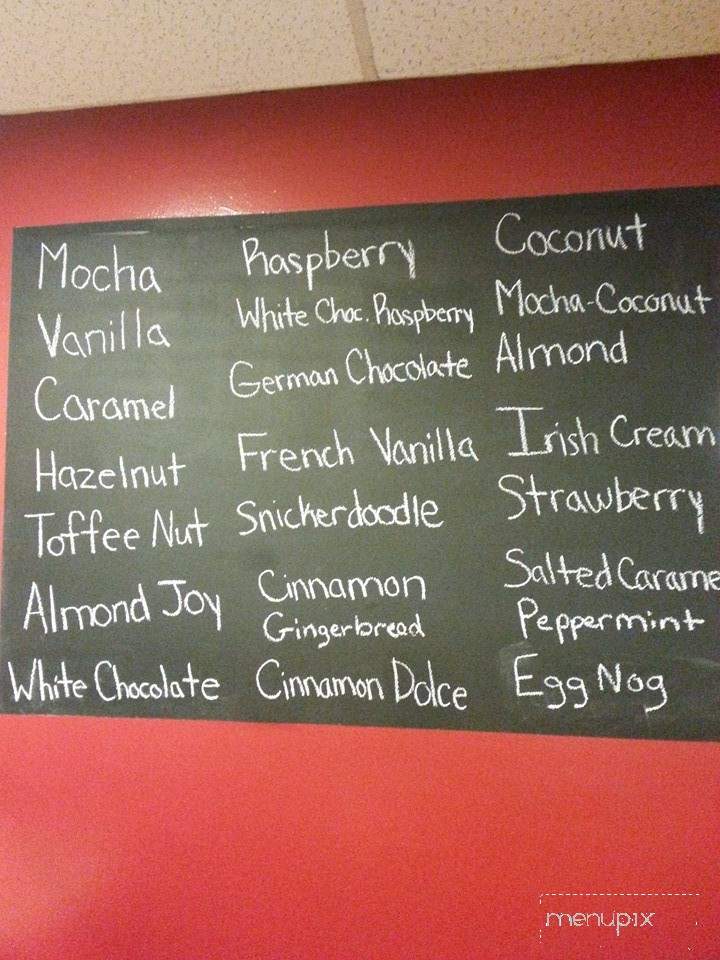 Mocha
Vanilla
Caramel
Hazelnut
Toffee Nut
Almond Joy
White Chocolate
Raspberry
White Choc. Raspberry
German Chocolate
French Vanilla
Snickerdoodle
Cinnamon
Gingerbread
Cinnamon Dolce
Coconut
Mocha-Coconut
Almond
Irish Cream
Strawberry
Salted Carame
Peppermint
Egg Nog
menupix